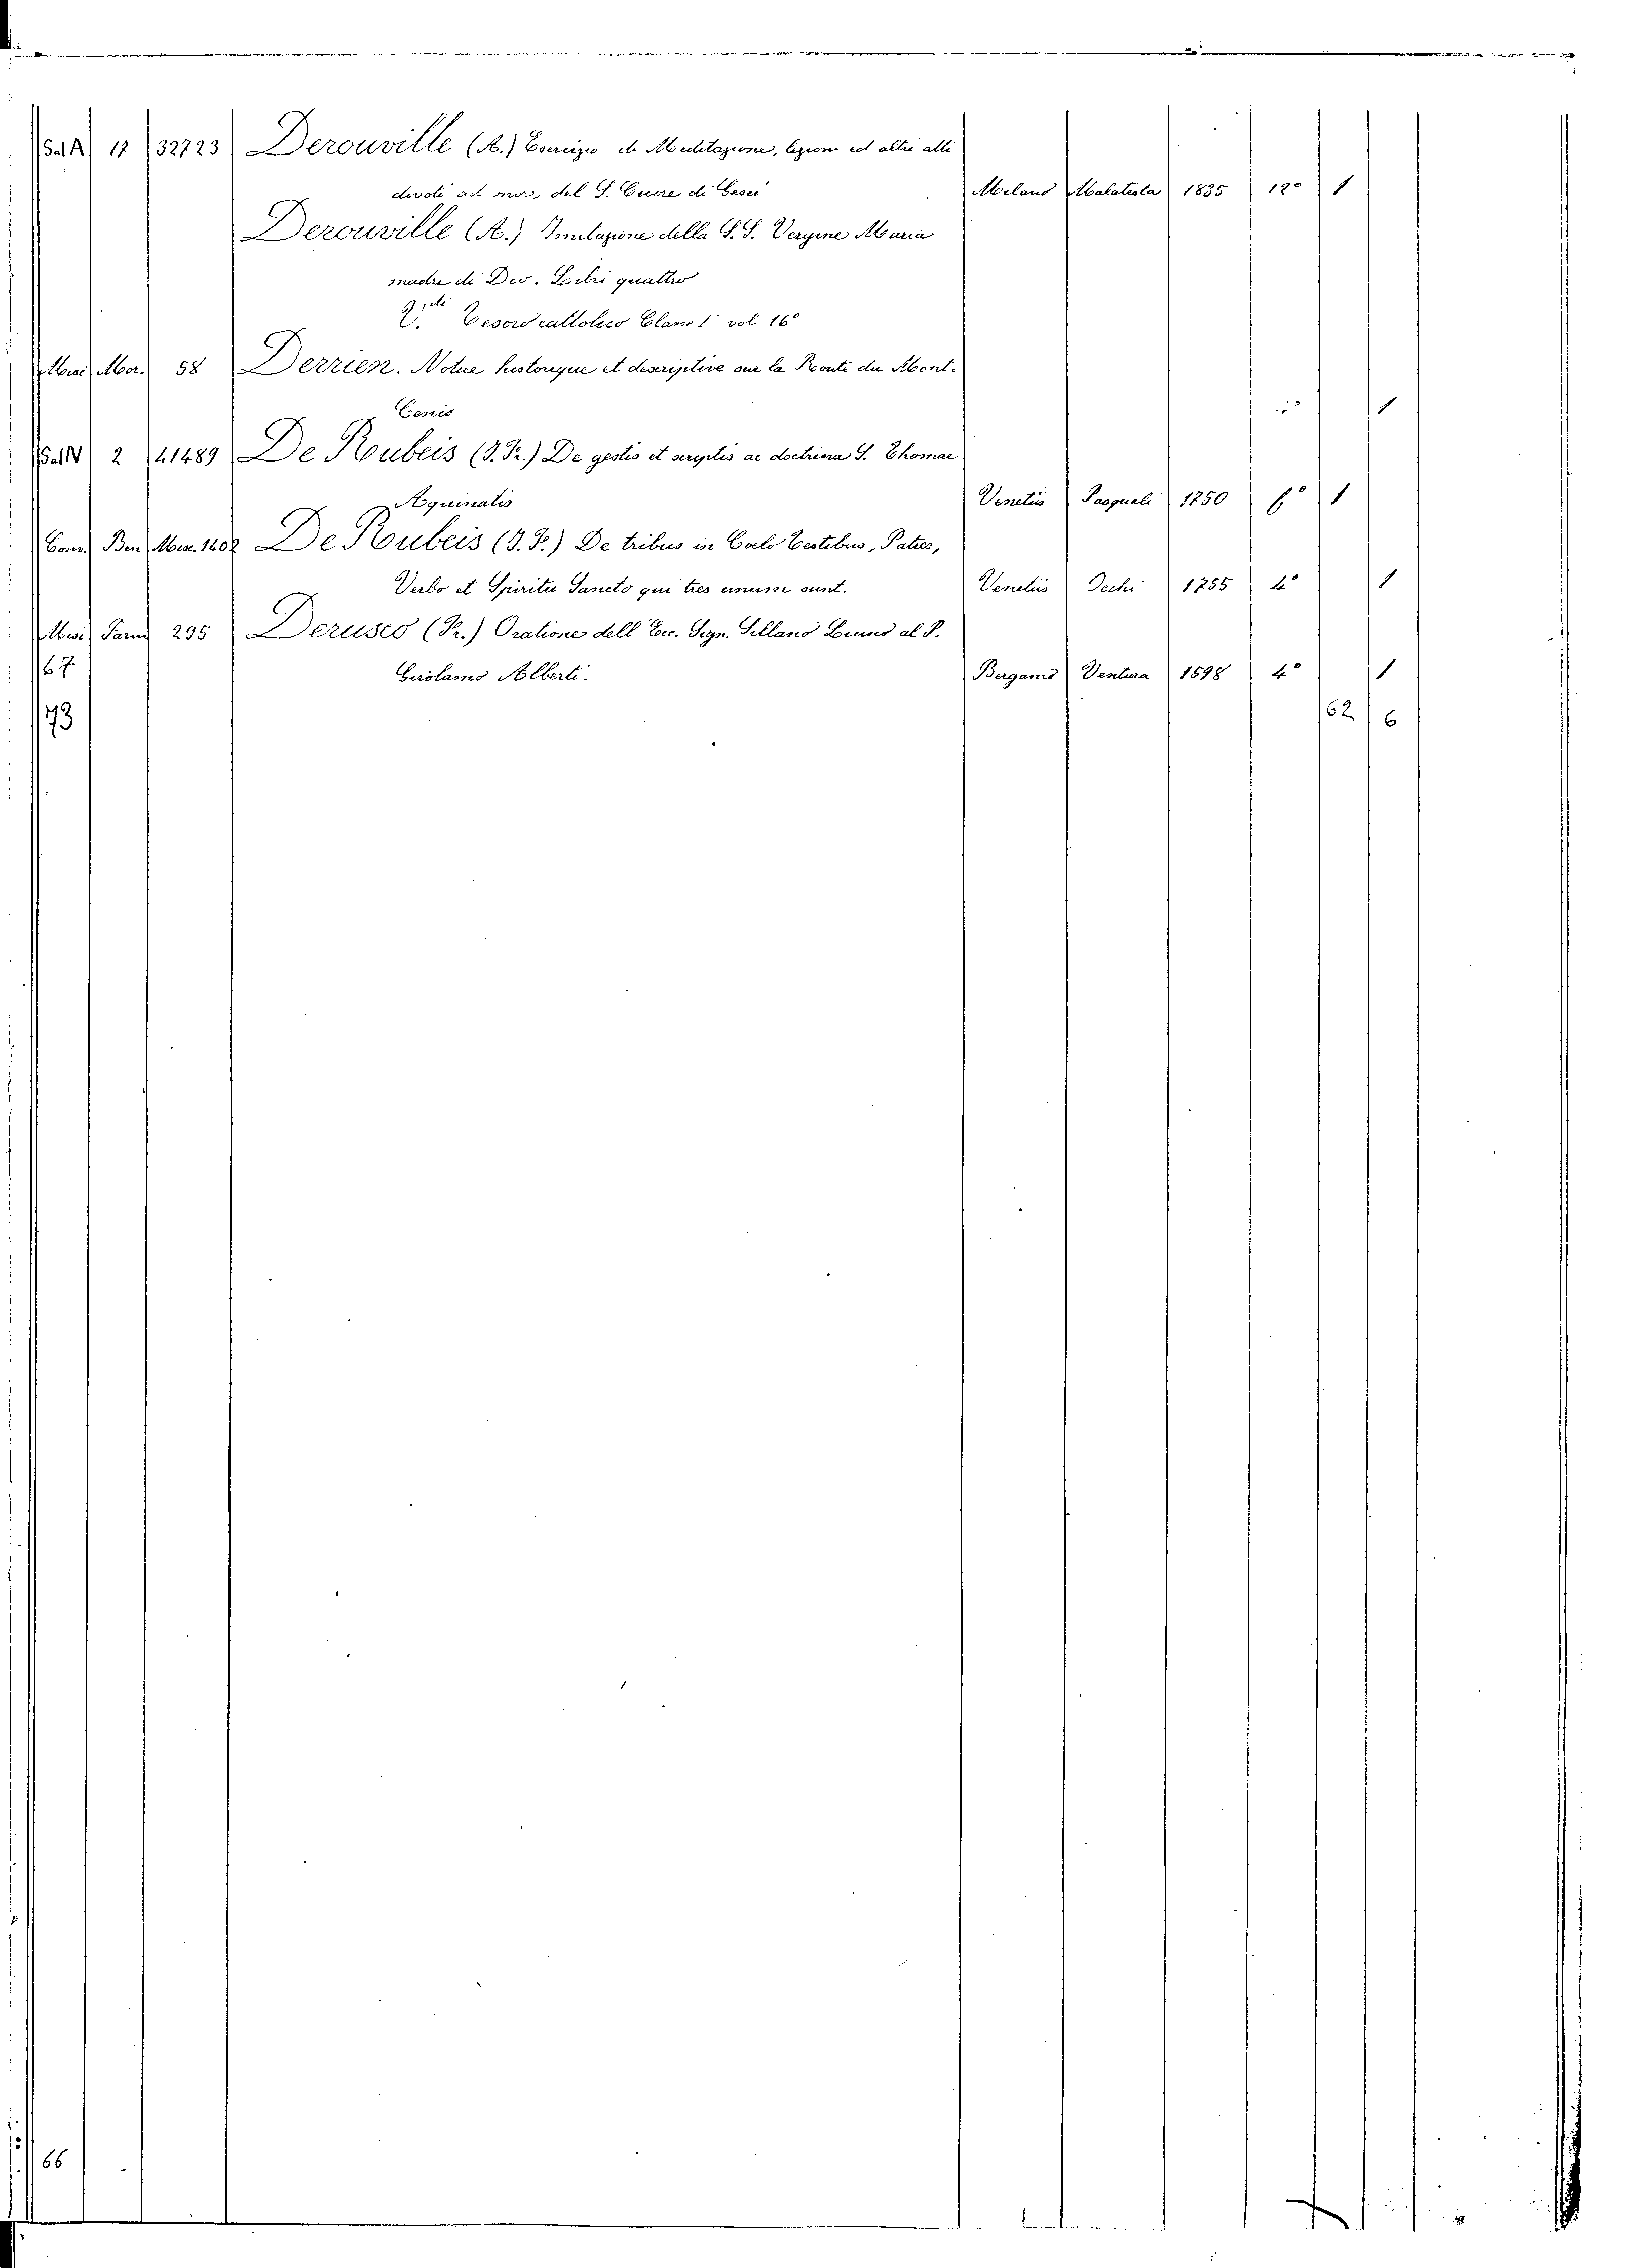 Sal A 17 32723 Derouville (A.) Esercizio di Meditazione, lezioni ed altri atti
devoti ad del S. Cuore di Gesù Milano Malatesta 1835 12° 1
Derouville (A.) Imitazione della S. S. Vergine Maria
madre di Dio. Libri quattro
V.di Tesoro cattolico Classe 1 vol 16°
Misc. Mor. 58 Derrien. Notice historique et descriptive sur la Route du Mont-
Cenis 1
Sal 2 41489 De Roubeis (J. Fr.) De gestis et scriptis ac doctrina S. Thomae
Aquinatis Venetiis Pasquali 1750 f° 1
Com. Ben Mis. 1402 De Roubeis (J. F.) De tribus in Coelo Testibus, Patre,
Verbo et Spiritu Sancto qui tres unum sunt. Venetiis 1755 4° 1
Misc. 295 Derusco (Fr.) Oratione dell Ecc. Sign. al P.
67 Girolamo Alberti. Bergamo Ventura 1598 4° 1
173 62 6
66